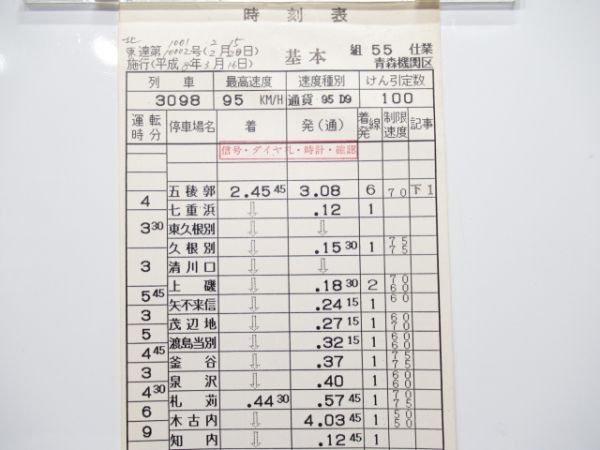 時刻表
北 1001 2 15
東達第10002号(2月28日) 基本 組 55 仕業
施行(平成8年3月16日) 青森機関区
列車 最高速度 速度種別 けん引定数
3098 95 KM/H 通貨 95 D9 100
運転時分 停車場名 着 発(通) 着発線 制限速度 記事
信号・ダイヤ札・時計・確認
五稜郭 2.45 45 3.08 6 70 下1
4
七重浜 ⇩ .12 1
東久根別 ⇩ ⇩
3 30
久根別 ⇩ .15 30 1 75 75
清川口 ⇩ ⇩
3
上磯 ⇩ .18 30 2 70 60
5 45
矢不来信 ⇩ .24 15 1 60
3
茂辺地 ⇩ .27 15 1 60 70
5
渡島当別 ⇩ .32 15 1 60 60
4 45
釜谷 ⇩ .37 1 75 75
3
泉沢 ⇩ .40 1 60 60
4 30
札苅 .44 30 .57 45 1 70 75
6
木古内 ⇩ 4.03 45 1 50 50
9
知内 ⇩ .12 45 1